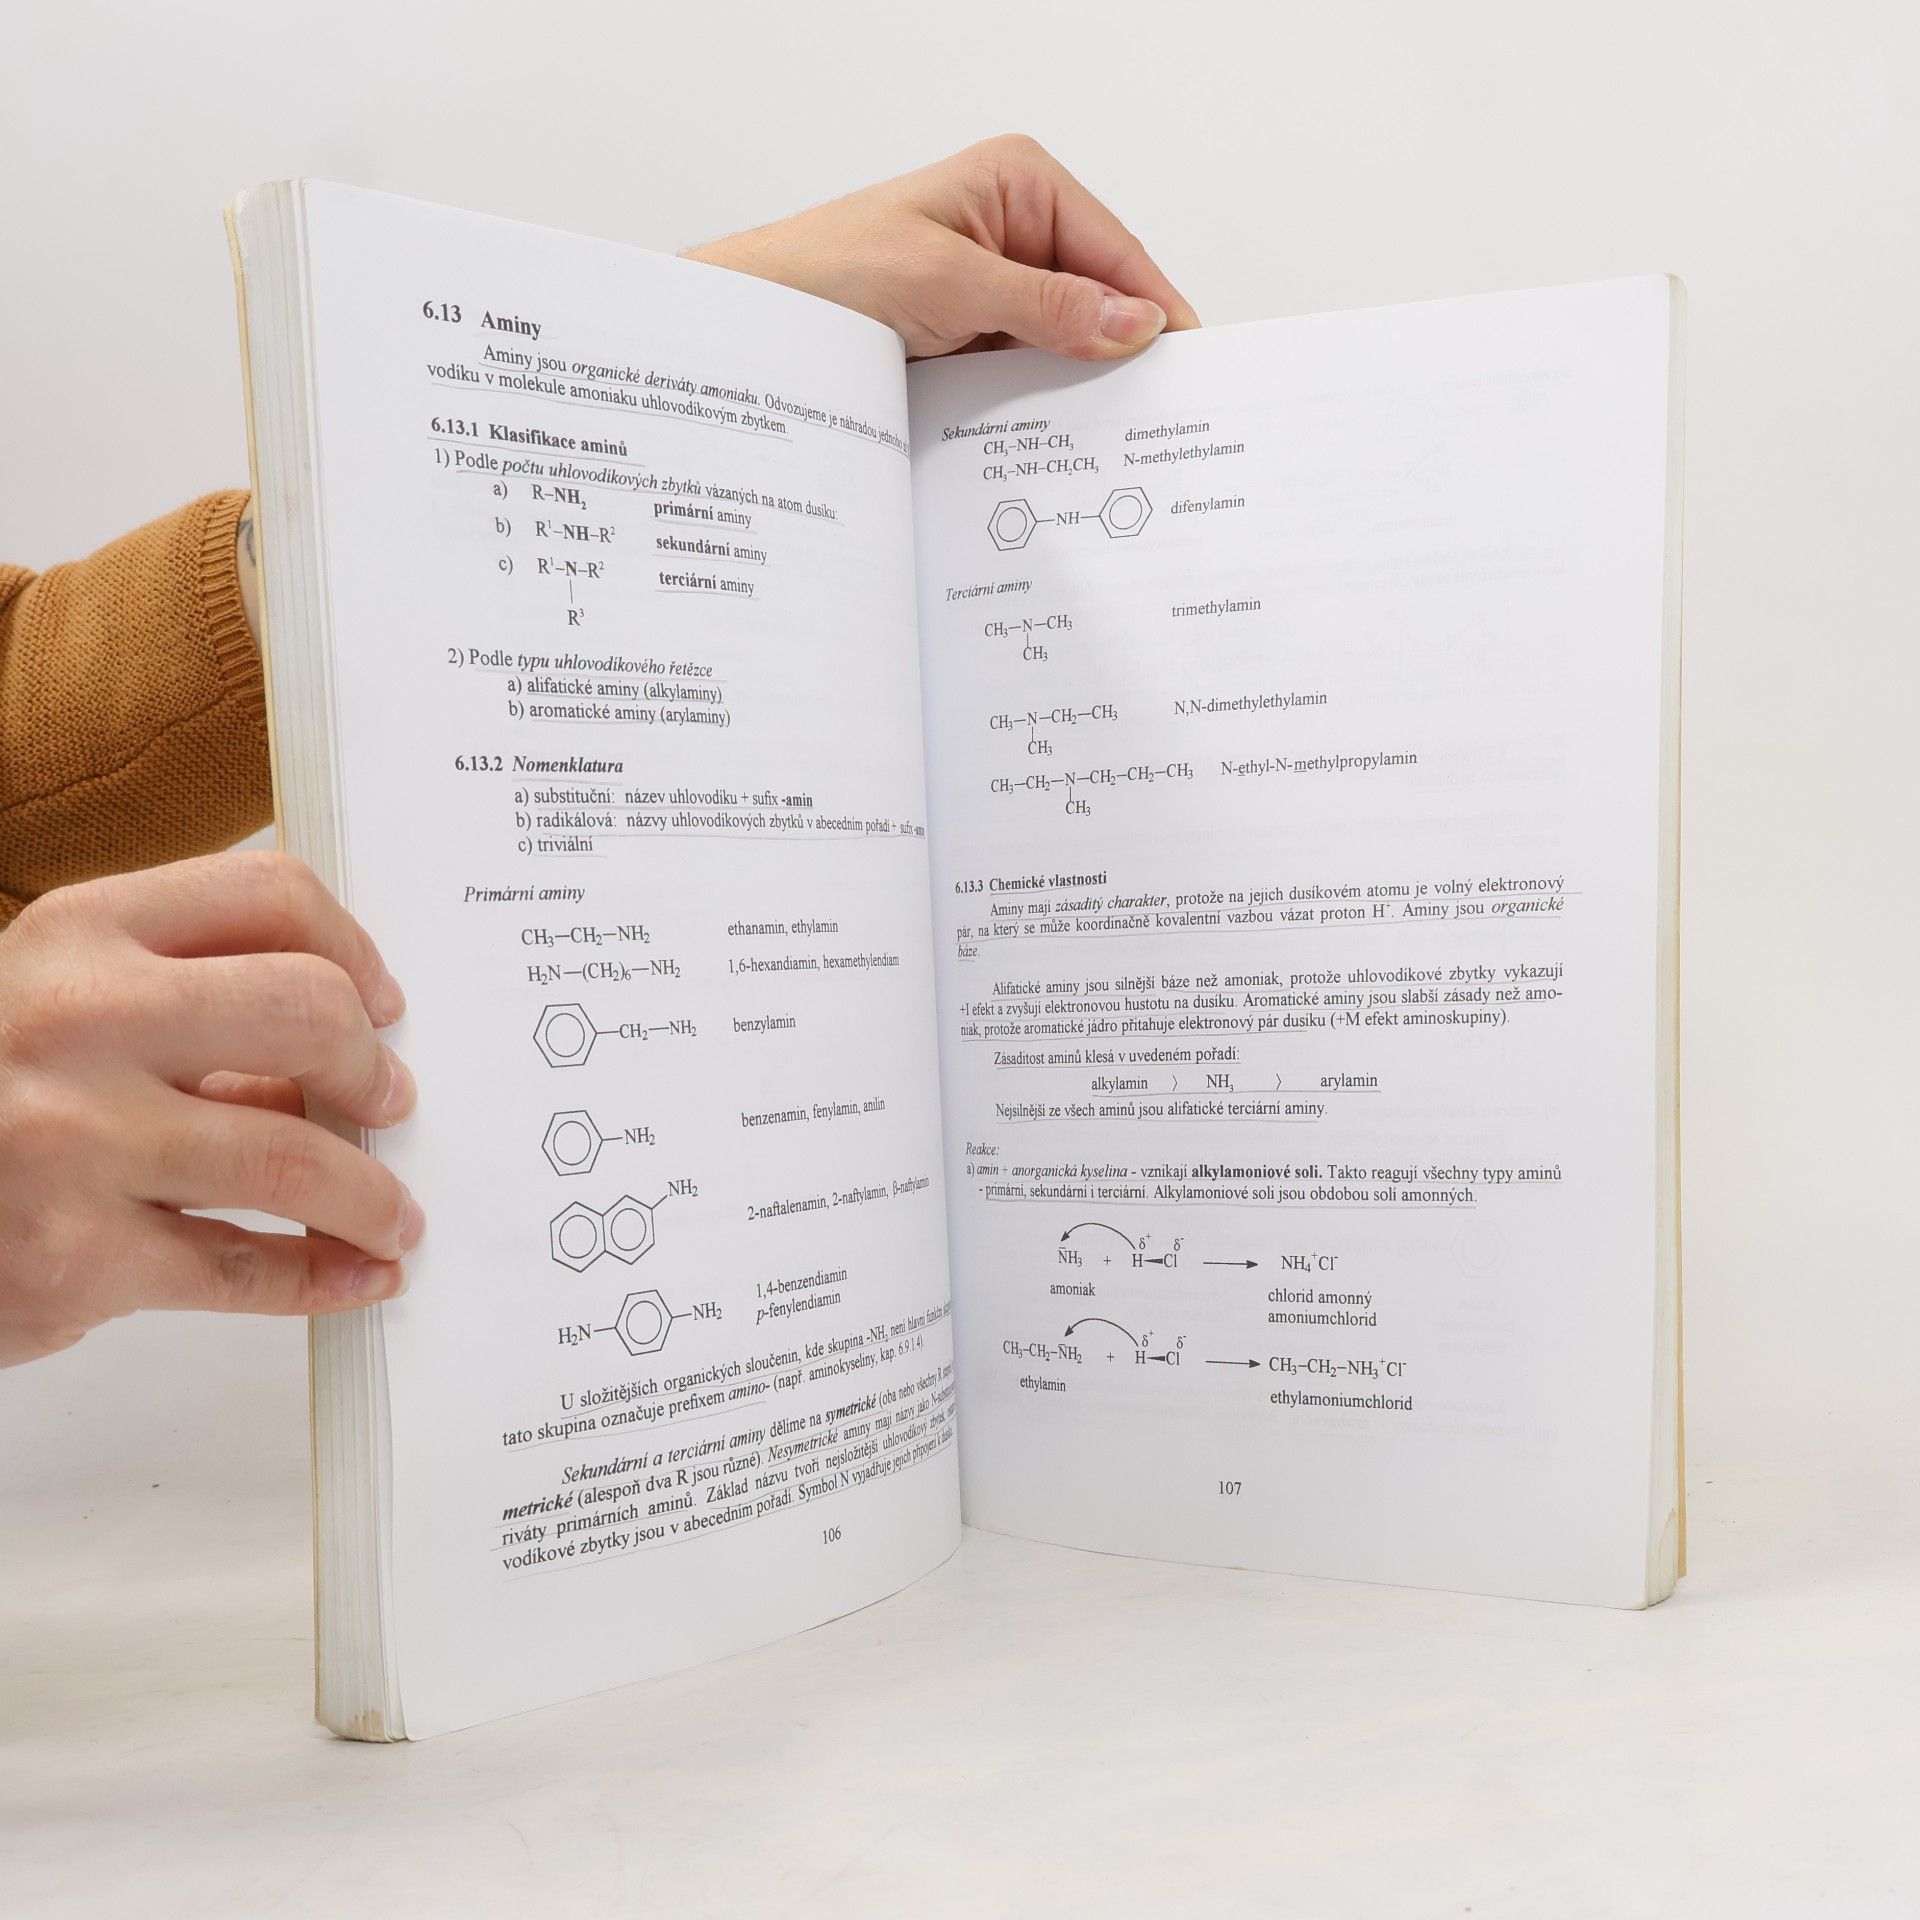 6.13 Aminy
Aminy jsou organické deriváty amoniaku. Odvozujeme je náhradou jednoho
vodíku v molekule amoniaku uhlovodíkovým zbytkem.
6.13.1 Klasifikace aminů
1) Podle počtu uhlovodíkových zbytků vázaných na atom dusíku:
a) R–NH₂ primární aminy
b) R¹–NH–R² sekundární aminy
c) R¹–N–R² terciární aminy
R³
2) Podle typu uhlovodíkového řetězce
a) alifatické aminy (alkylaminy)
b) aromatické aminy (arylaminy)
6.13.2 Nomenklatura
a) substituční: název uhlovodíku + sufix -amin
b) radikálová: názvy uhlovodíkových zbytků v abecedním pořadí + sufix
c) triviální
Primární aminy
CH₃–CH₂–NH₂ ethanamin, ethylamin
H₂N–(CH₂)₆–NH₂ 1,6-hexandiamin, hexamethylendiam
CH₂–NH₂ benzylamin
NH₂ benzenamin, fenylamin, anilin
NH₂ 2-naftalenamin, 2-naftylamin, β-naftylamin
1,4-benzendiamin
H₂N NH₂ p-fenylendiamin
U složitějších organických sloučenin, kde skupina -NH₂ není hlavní funkční
tato skupina označuje prefixem amino- (např. aminokyseliny, kap. 6.9.1.4).
Sekundární a terciární aminy dělíme na symetrické (oba nebo všechny R
metrické (alespoň dva R jsou různé). Nesymetrické aminy mají názvy jako
riváty primárních aminů. Základ názvu tvoří nejsložitější uhlovodíkový zbytek,
vodíkové zbytky jsou v abecedním pořadí. Symbol N vyjadřuje jejich připojení k
106
Sekundární aminy
CH₃–NH–CH₃ dimethylamin
CH₃–NH–CH₂CH₃ N-methylethylamin
NH difenylamin
Terciární aminy
CH₃–N–CH₃ trimethylamin
CH₃
CH₃–N–CH₂–CH₃ N,N-dimethylethylamin
CH₃
CH₃–CH₂–N–CH₂–CH₂–CH₃ N-ethyl-N-methylpropylamin
CH₃
6.13.3 Chemické vlastnosti
Aminy mají zásaditý charakter, protože na jejich dusíkovém atomu je volný elektronový
pár, na který se může koordinačně kovalentní vazbou vázat proton H⁺. Aminy jsou organické
báze.
Alifatické aminy jsou silnější báze než amoniak, protože uhlovodíkové zbytky vykazují
+I efekt a zvyšují elektronovou hustotu na dusíku. Aromatické aminy jsou slabší zásady než amo-
niak, protože aromatické jádro přitahuje elektronový pár dusíku (+M efekt aminoskupiny).
Zásaditost aminů klesá v uvedeném pořadí:
alkylamin 〉 NH₃ 〉 arylamin
Nejsilnější ze všech aminů jsou alifatické terciární aminy.
Reakce:
a) amin + anorganická kyselina - vznikají alkylamoniové soli. Takto reagují všechny typy aminů
- primární, sekundární i terciární. Alkylamoniové soli jsou obdobou solí amonných.
δ⁺ δ⁻
N̄H₃ + H–Cl → NH₄⁺Cl⁻
amoniak chlorid amonný
amoniumchlorid
δ⁺ δ⁻
CH₃–CH₂–N̄H₂ + H–Cl → CH₃–CH₂–NH₃⁺Cl⁻
ethylamin ethylamoniumchlorid
107